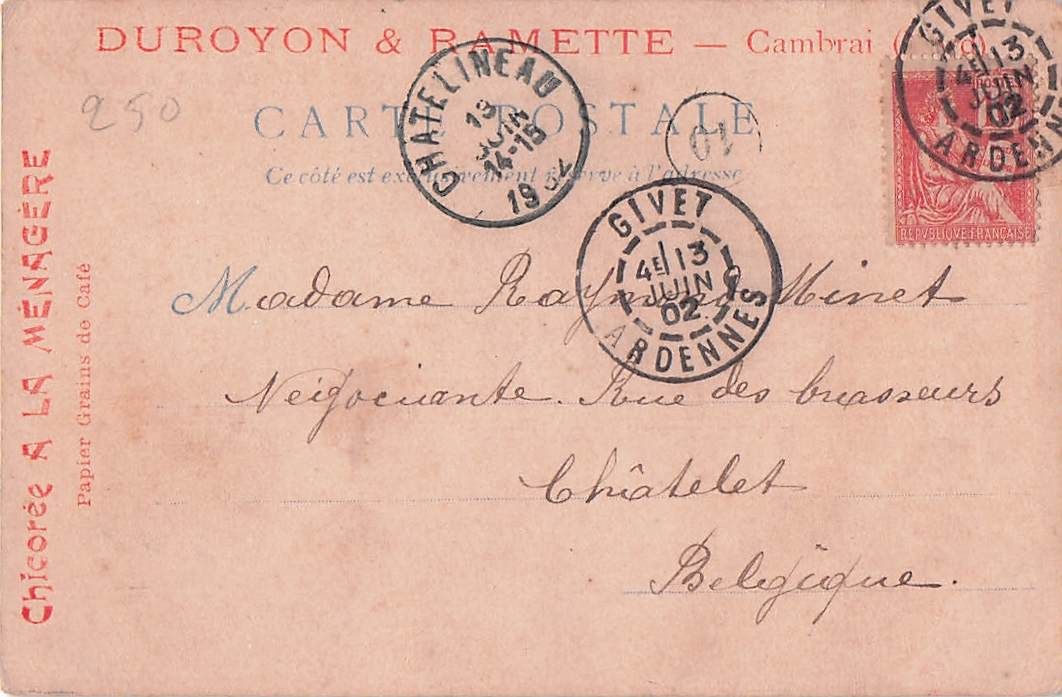 DUROYON & RAMETTE — Cambrai
250
CARTE POSTALE
Ce côté est exclusivement réservé à l'adresse
CHATELINEAU
13
JUIN
14-15
1902
01
GIVET
4E 13
JUIN
02
ARDENNES
GIVET
4E 13
JUIN
02
ARDENNES
REPVBLIQVE FRANÇAISE
Madame Raymond Minet
Neigociante. Rue des brasseurs
Châtelet
Belgique.
Chicorée A LA MÉNAGÈRE
Papier Grains de Café